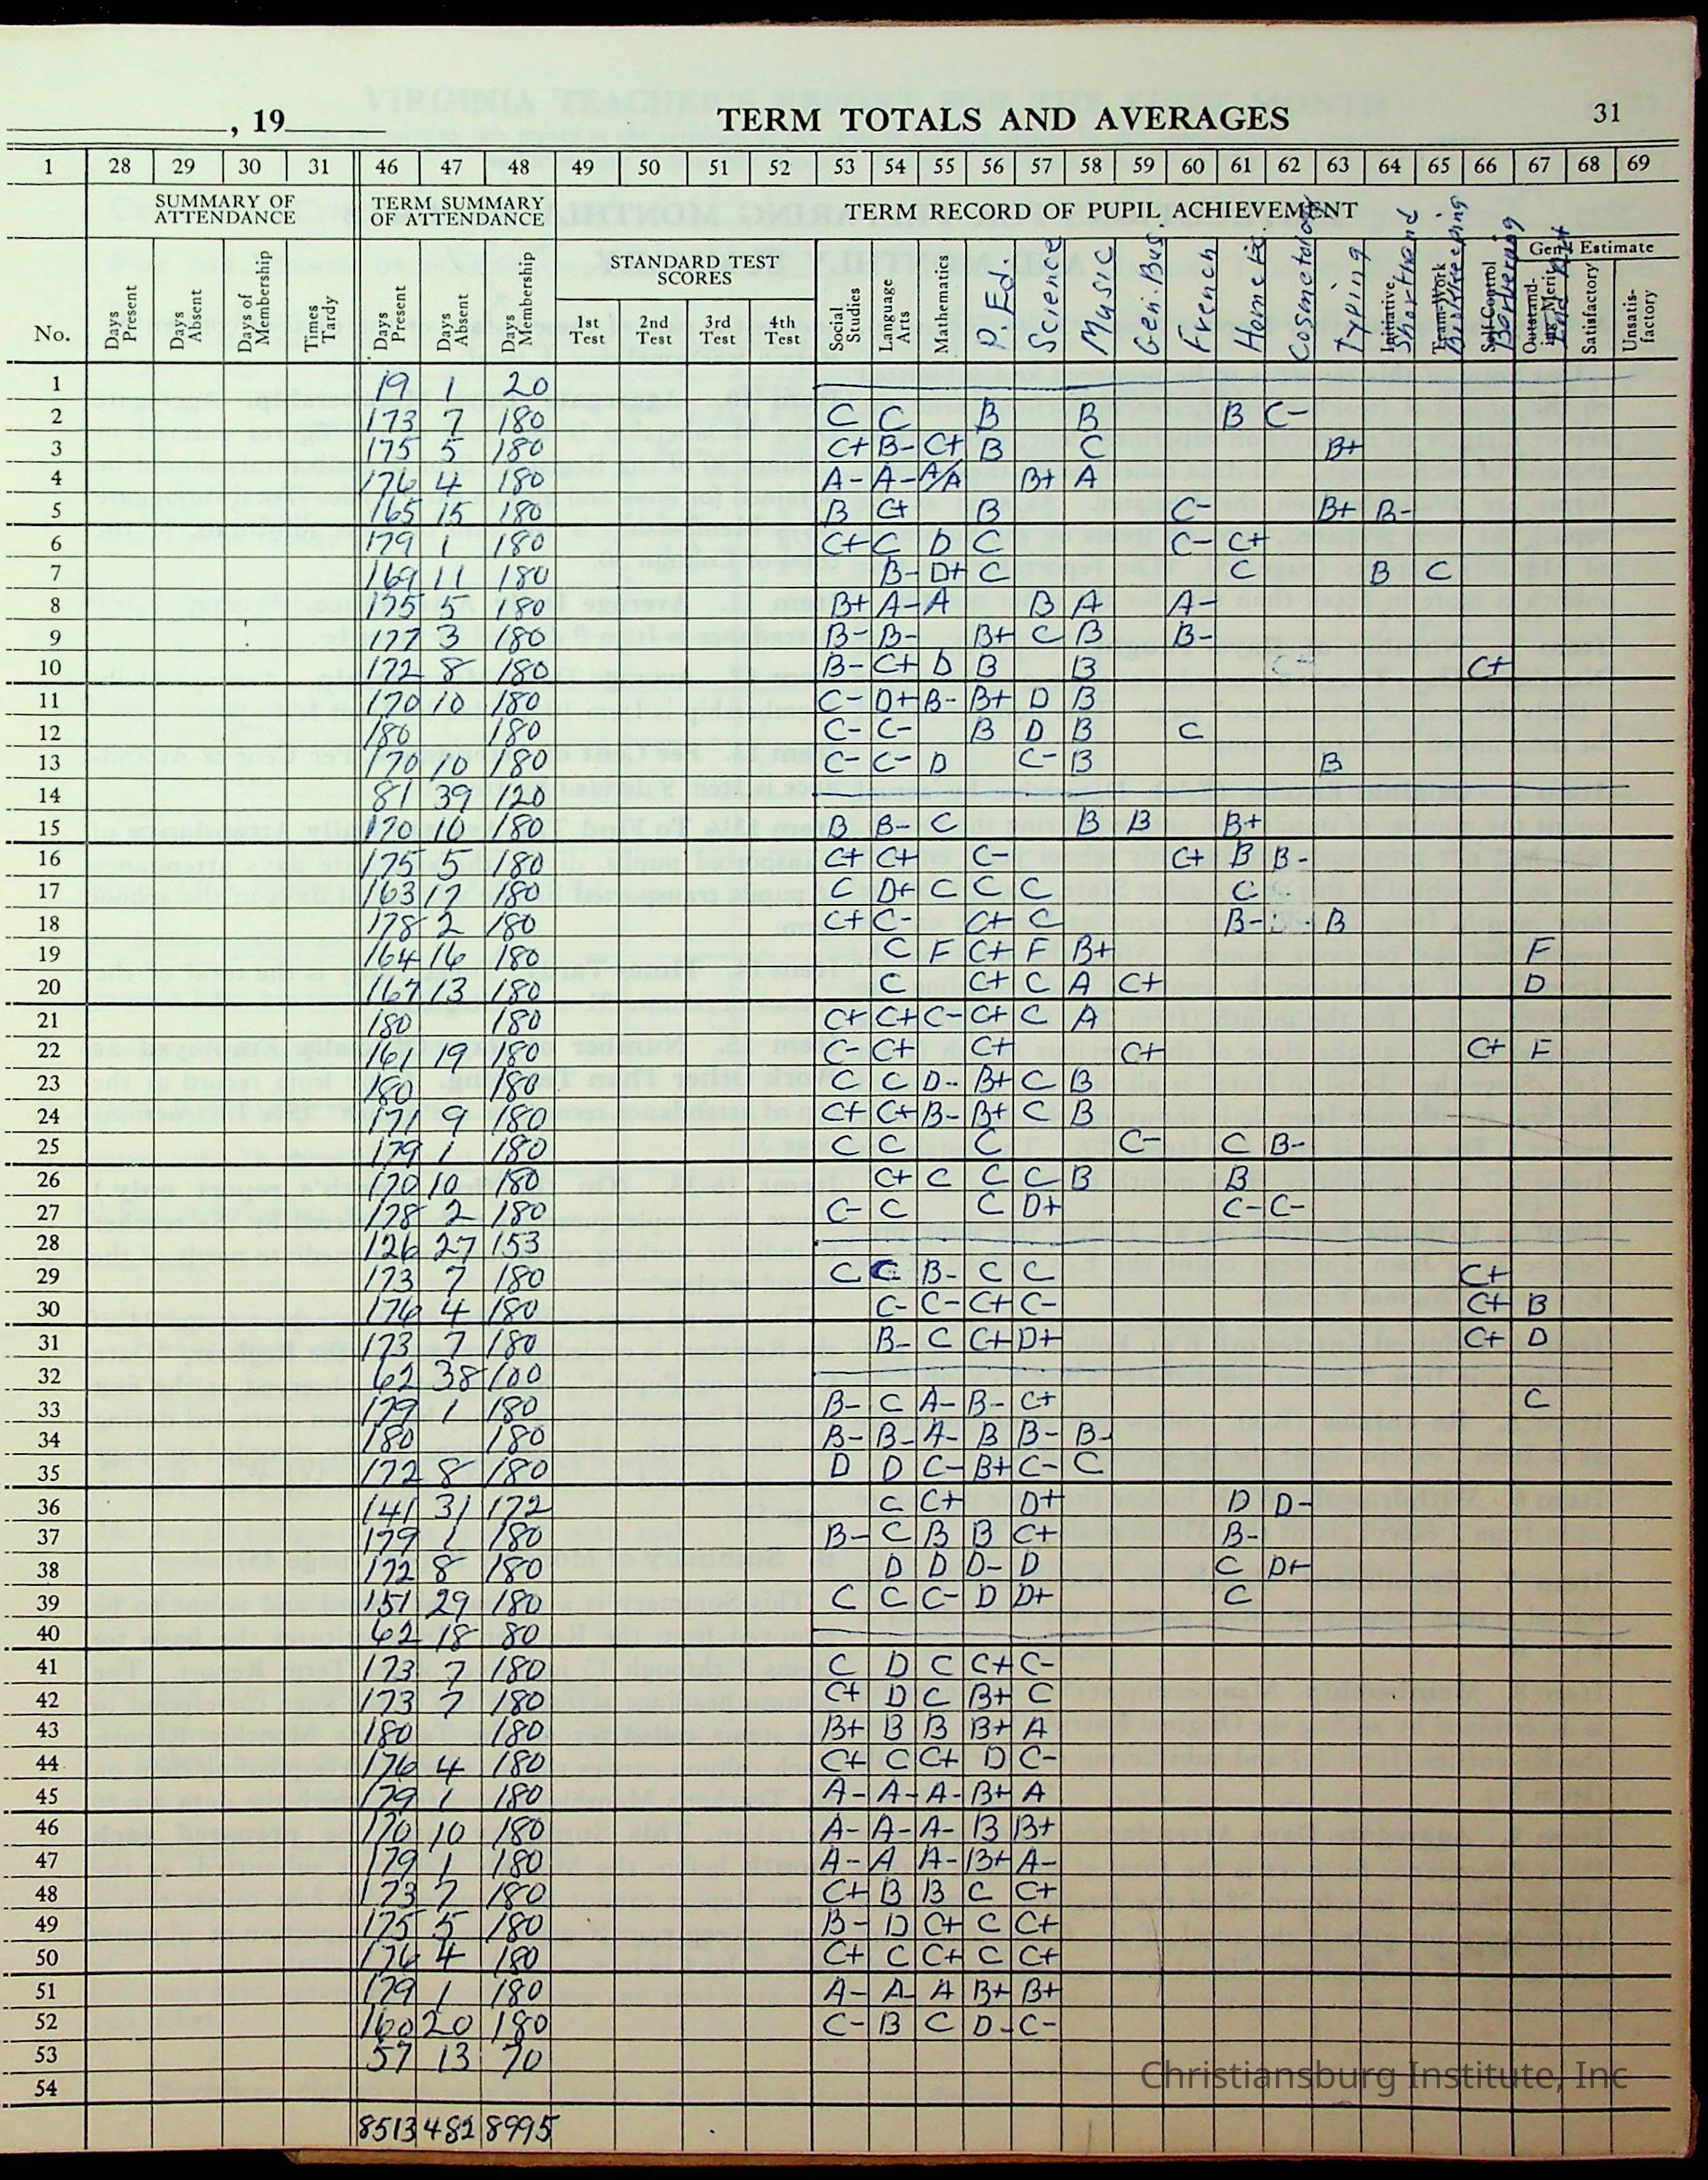 , 19 TERM TOTALS AND AVERAGES 31
1 28 29 30 31 46 47 48 49 50 51 52 53 54 55 56 57 58 59 60 61 62 63 64 65 66 67 68 69
SUMMARY OF ATTENDANCE TERM SUMMARY OF ATTENDANCE TERM RECORD OF PUPIL ACHIEVEMENT
STANDARD TEST SCORES Gen'l Estimate
No. Days Present Days Absent Days of Membership Times Tardy Days Present Days Absent Days Membership 1st Test 2nd Test 3rd Test 4th Test Social Studies Language Arts Mathematics P. Ed. Science Music Gen. Bus. French Home Ec. Cosmetology Typing Initiative Shorthand Team-Work Bookkeeping Self-Control Outstanding Merit Ind Art Satisfactory Unsatisfactory
1 19 1 20
2 173 7 180 C C B B B C-
3 175 5 180 C+ B- C+ B C B+
4 176 4 180 A- A- A/A B+ A
5 165 15 180 B C+ B C- B+ B-
6 179 1 180 C+ C D C C- C+
7 169 11 180 B- D+ C C B C
8 175 5 180 B+ A- A B A A-
9 177 3 180 B- B- B+ C B B-
10 172 8 180 B- C+ D B B C+
11 170 10 180 C- D+ B- B+ D B
12 180 180 C- C- B D B C
13 170 10 180 C- C- D C- B B
14 81 39 120
15 170 10 180 B B- C B B B+
16 175 5 180 C+ C+ C- C+ B B-
17 163 17 180 C D+ C C C C
18 178 2 180 C+ C- C+ C B- D- B
19 164 16 180 C F C+ F B+ F
20 167 13 180 C C+ C A C+ D
21 180 180 C+ C+ C- C+ C A
22 161 19 180 C- C+ C+ C+ C+ F
23 180 180 C C D- B+ C B
24 171 9 180 C+ C+ B- B+ C B
25 179 1 180 C C C C- C B-
26 170 10 180 C+ C C C B B
27 178 2 180 C- C C D+ C- C-
28 126 27 153
29 173 7 180 C C B- C C C+
30 176 4 180 C- C- C+ C- C+ B
31 173 7 180 B- C C+ D+ C+ D
32 62 38 100
33 179 1 180 B- C A- B- C+ C
34 180 180 B- B- A- B B- B-
35 172 8 180 D D C- B+ C- C
36 141 31 172 C C+ D+ D D-
37 179 1 180 B- C B B C+ B-
38 172 8 180 D D D- D C D+
39 151 29 180 C C C- D D+ C
40 62 18 80
41 173 7 180 C D C C+ C-
42 173 7 180 C+ D C B+ C
43 180 180 B+ B B B+ A
44 176 4 180 C+ C C+ D C-
45 179 1 180 A- A- A- B+ A
46 170 10 180 A- A- A- B B+
47 179 1 180 A- A A- B+ A-
48 173 7 180 C+ B B C C+
49 175 5 180 B- D C+ C C+
50 176 4 180 C+ C C+ C C+
51 179 1 180 A- A- A B+ B+
52 160 20 180 C- B C D- C-
53 57 13 70
Christiansburg Institute, Inc
54
8513 482 8995